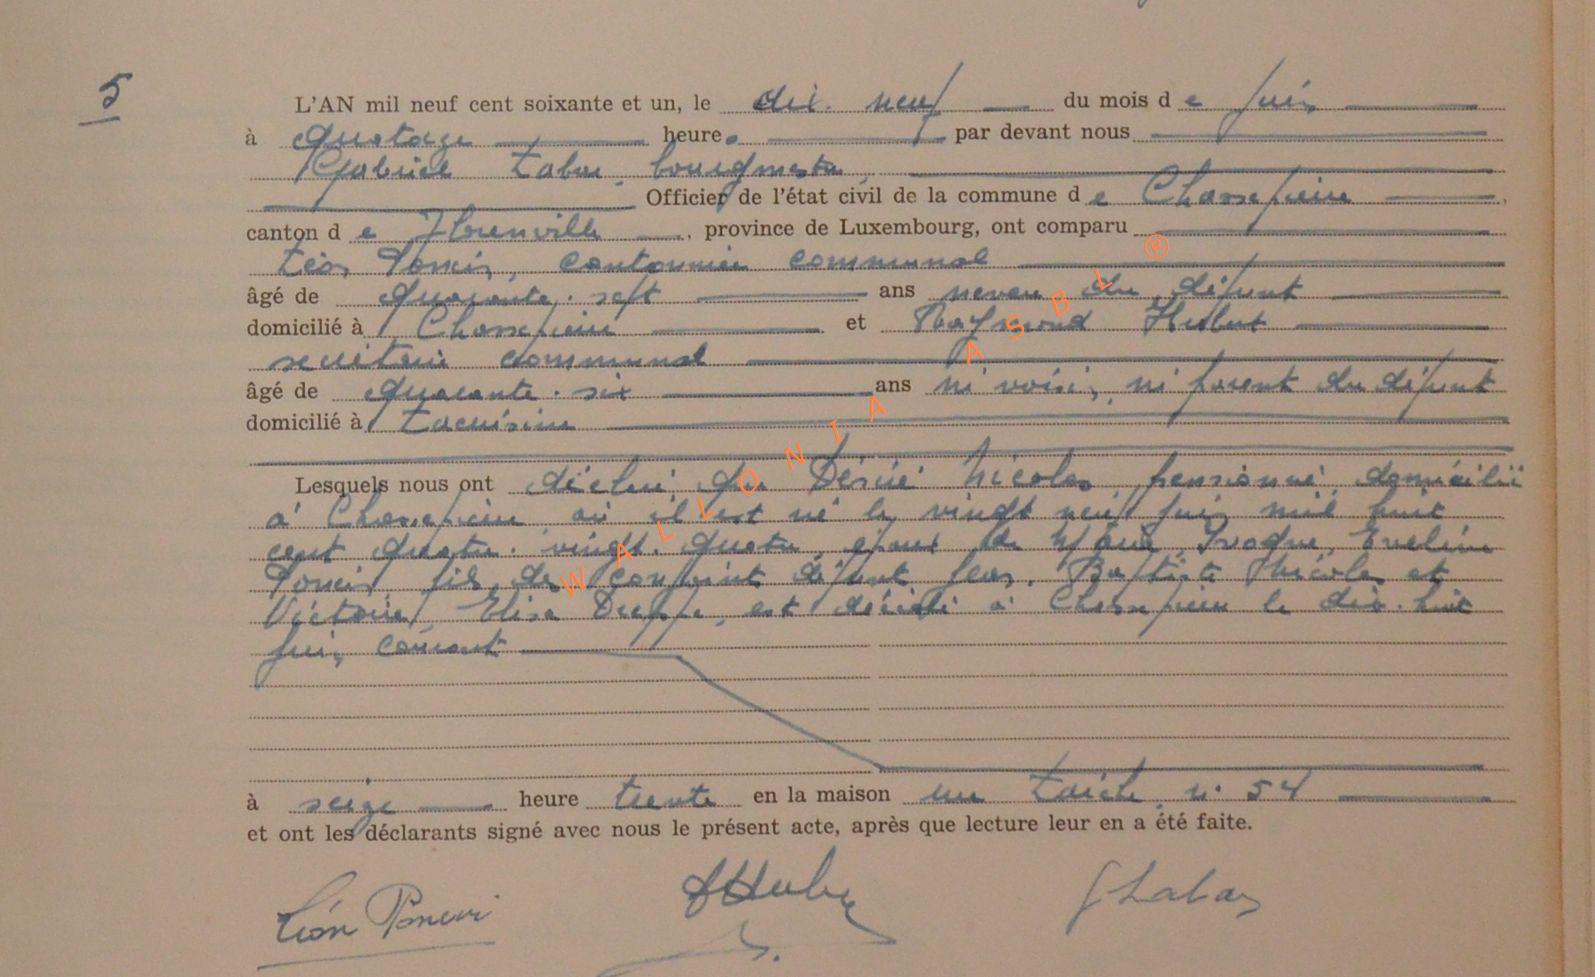 5
L'AN mil neuf cent soixante et un, le dix-neuf du mois de juin
à quatorze heures par devant nous
Gabriel Labar, bourgmestre,
Officier de l'état civil de la commune de Chassepierre,
canton de Florenville, province de Luxembourg, ont comparu
Léon Poncin, cantonnier communal
âgé de quarante-sept ans neveu du défunt
domicilié à Chassepierre et Raymond Hubert
secrétaire communal
âgé de quarante-six ans ni voisin, ni parent du défunt
domicilié à Lacuisine
Lesquels nous ont déclaré que Désiré Nicolas, pensionné, domicilié
à Chassepierre, où il est né le vingt neuf juin mil huit
cent quatre-vingt-quatre, époux de Yvodne, Eveline
Poncin, fils de conjoint défunt Jean-Baptiste Nicolas et
Victoire, Elise Dreppe, est décédé à Chassepierre le dix-huit
juin courant
à seize heure trente en la maison n° 54
et ont les déclarants signé avec nous le présent acte, après que lecture leur en a été faite.
Léon Poncin
Hubert
G Labar
WALLONIA ASBL ®